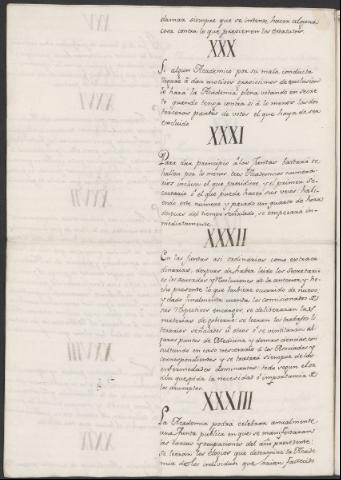 clamar siempre que se intente hacer alguna
cosa contra lo que previenen los estatutos.
XXX
Si algun Academico por su mala conducta
llegare á dar motivos precisos de exclusion
lo hará la Academia plena, votando en secre-
to quando tenga contra si á lo menos las dos
terceras partes de votos el que haya de ser
excluido.
XXXI
Para dar principio á las Juntas bastará se
hallen por lo menos tres Academicos numera-
rios incluso el que presidiere, y el primer Se-
cretario ó el que pueda hacer sus veces: hali-
endo este numero y pasado un quarto de hora
despues del tiempo señalado, se empezará in-
mediatamente.
XXXII
En las Juntas asi ordinarias como extraor-
dinarias, despues de haber leido los Secretari-
os los acuerdos y resoluciones de la anterior, y he-
cho presente lo que hubiere ocurrido de nuevo,
y dado finalmente cuenta los comisionados de
sus respectivos encargos, se deliberarán las
materias de gobierno: se leeran los trabajos li-
terarios señalados á otros ó se ventilarán al-
gunos puntos de Medicina y demas ciencias, con-
sultando en caso necesario á los Asociados y
correspondientes y se tratará siempre de las
enfermedades dominantes: todo segun el or-
den que pida la necesidad ó importancia de
los asumptos.
XXXIII
La Academia podrá celebrar anualmente
una Junta publica en que se manifestarán
las tareas y ocupaciones del año precedente:
se leeran los elogios que determine la Acade-
mia de los individuos que hayan fallecido